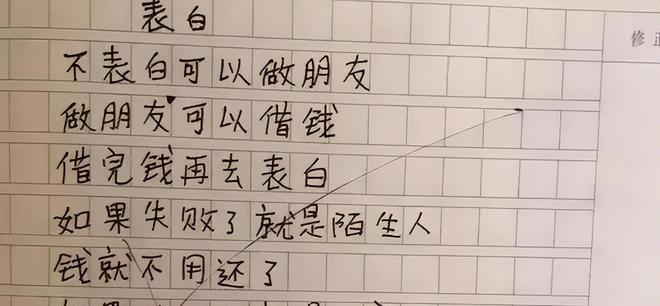 表白
修正
不表白可以做朋友
做朋友可以借钱
借完钱再去表白
如果失败了就是陌生人
钱就不用还了